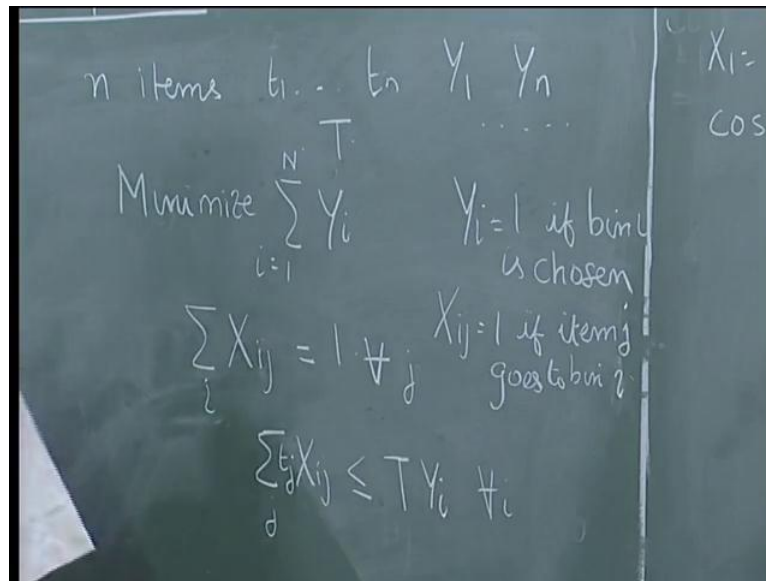 n items t₁... tₙ Y₁ Yₙ
T .....
Minimize ∑ᵢ₌₁ᴺ Yᵢ Yᵢ=1 if bin i
is chosen
∑ᵢ Xᵢⱼ = 1 ∀ⱼ Xᵢⱼ=1 if item j
goes to bin i.
∑ⱼ tⱼXᵢⱼ ≤ TYᵢ ∀ᵢ
X₁=
cos